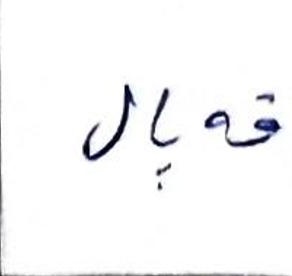 قەپال